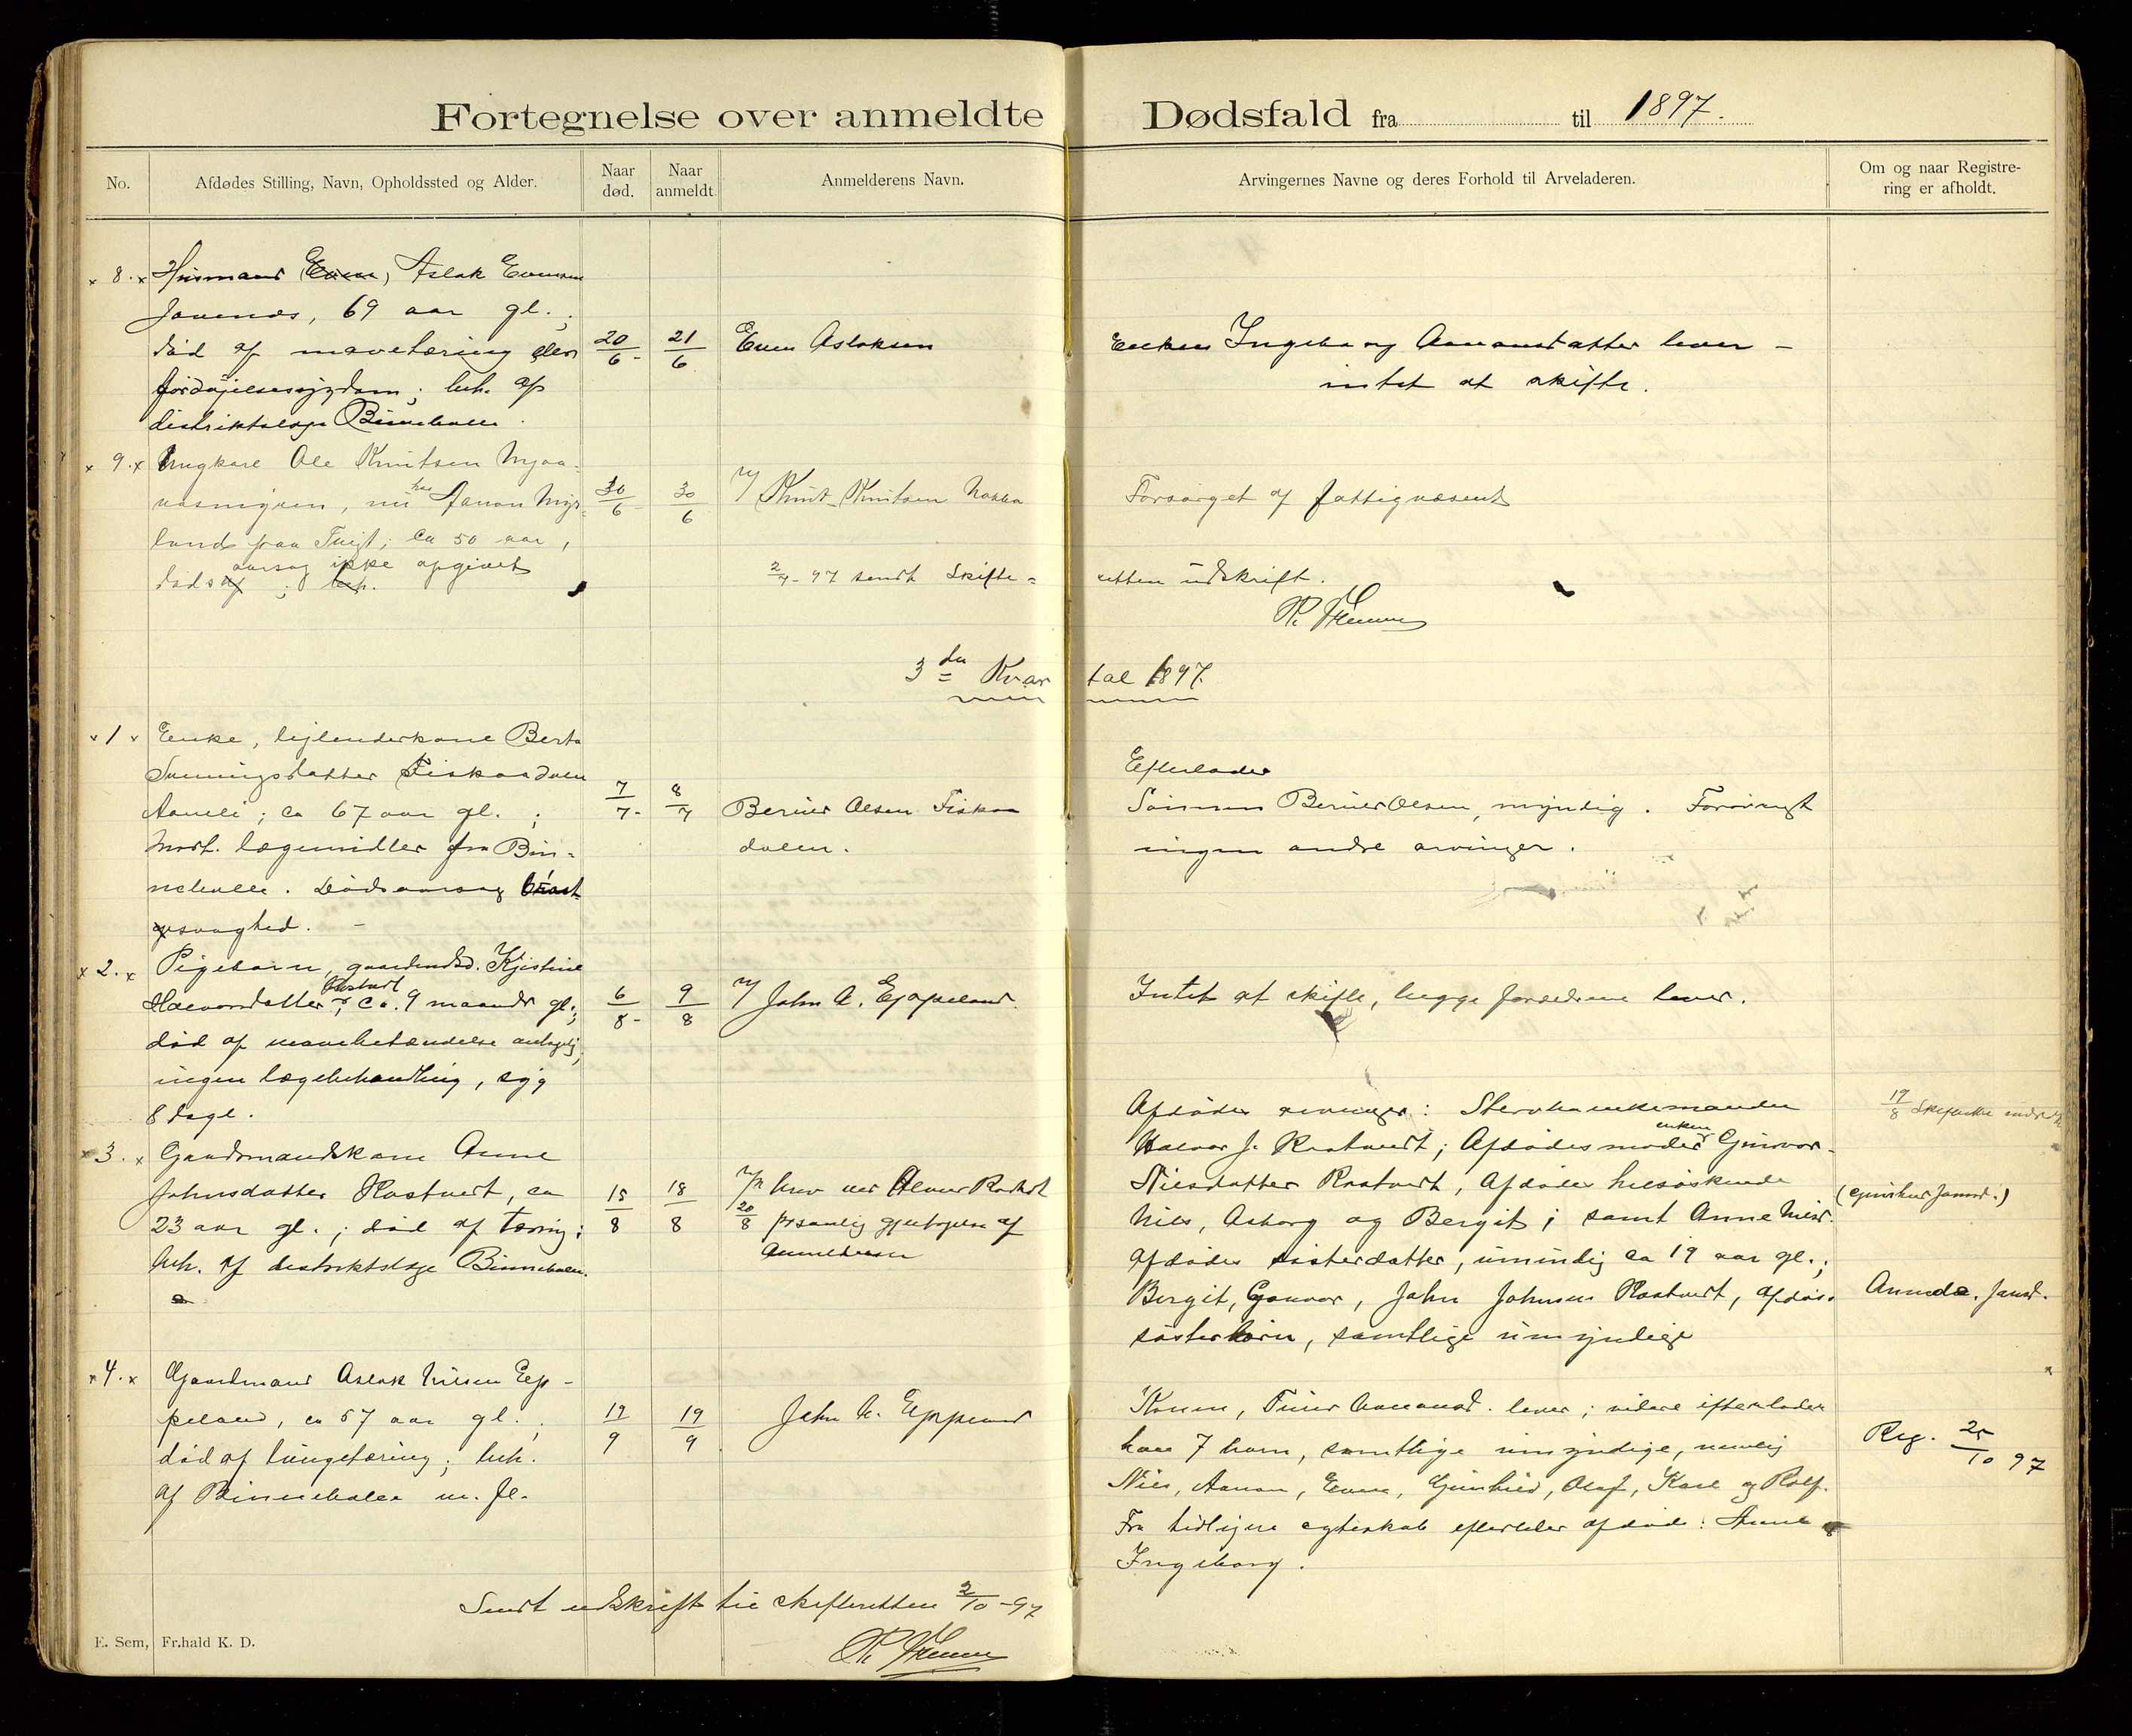 Fortegnelse over anmeldte Dødsfald fra til 1897.
No.
Afdødes Stilling, Navn, Opholdssted og Alder.
Naar død.
Naar anmeldt.
Anmelderens Navn.
Arvingernes Navne og deres Forhold til Arveladeren.
Om og naar Registre-
ring er afholdt.
x 8. x Husmand Even, Aslak Evensen
69 aar gl.;
død af mavetæring eller
fordøjelsessygdom; beh. af
distriktslæge Binneballe.
20/6- 21/6 Even Aslaksen
Enken Ingeborg Aanonsdatter lever -
intet at skifte.
x 9. x Ungkarl Ole Knutsen Mjaa-
vasmyren, nu hos Aanon Myr-
land paa Tveit; ca 50 aar,
dødsaarsag ikke opgivet
; beh.
30/6- 30/6 Knut Knutsen
Forsørget af fattigvæsenet
2/7-97 sendt Skifte-
retten udskrift.
3die Kvartal 1897.
x 1 x Enke, lejlenderkone Berta
Sunningsdatter Fiskaadalen
Aamli; ca 67 aar gl.;
Modt. lægemidler fra Bin-
neballe. Dødsaarsag bryst-
svaghed. -
7/7- 8/7 Berner Olsen Fiskaa
dalen.
Efterlader
Sønnen Berner Olsen, myndig. Forøvrigt
ingen andre arvinger.
x 2. x Pigebarn, gaardmdsd. Kjistine
Halvorsdatter Rostvert, ca. 9 maander gl.;
død af mavebetændelse antagelig;
ingen lægebehandling, syg
8 dage.
6/8- 9/8 John A. Eppeland
Intet at skifte, begge forældrene lever.
x 3. x Gaardmandskone Anne
Johnsdatter Rostvert, ca
23 aar gl.; død af tæring;
beh. af distriktslæge Binneballe.
15/8 18/8 brev
20/8 personlig gjentagelse af
Anmeldelsen
Afdødes arvinger: Stervboenkemanden
Halvor J. Rostvert; Afdødes moder enken Gunvor
Nilsdatter Rostvert, Afdødes helsøskende
Nils, Asborg og Bergit; samt Anne Nilsd.
afdødes søsterdatter, umyndig ca 19 aar gl.;
Bergit, Gonvor, John Johnsen Rostvert, afdøs.
søsterbørn, samtlige umyndige
19/8
x 4. x Gaardmand Aslak Nilsen Epp-
peland, ca 57 aar gl.;
død af lungetæring; beh.
af Binneballe m. fl.
19/9 19/9 John A. Eppeland
Konen, Aanonsd. lever; videre efterlader
han 7 børn, samtlige umyndige, nemlig
Nils, Aanon, Even, Gunhild, Olaf, Karl og Rolf.
Fra tidligere egteskab efterlader afdøde: Anne &
Ingeborg.
Reg. 25/10 97
Sendt udskrift til skifteretten 2/10-97
E. Sem, Fr.hald K. D.